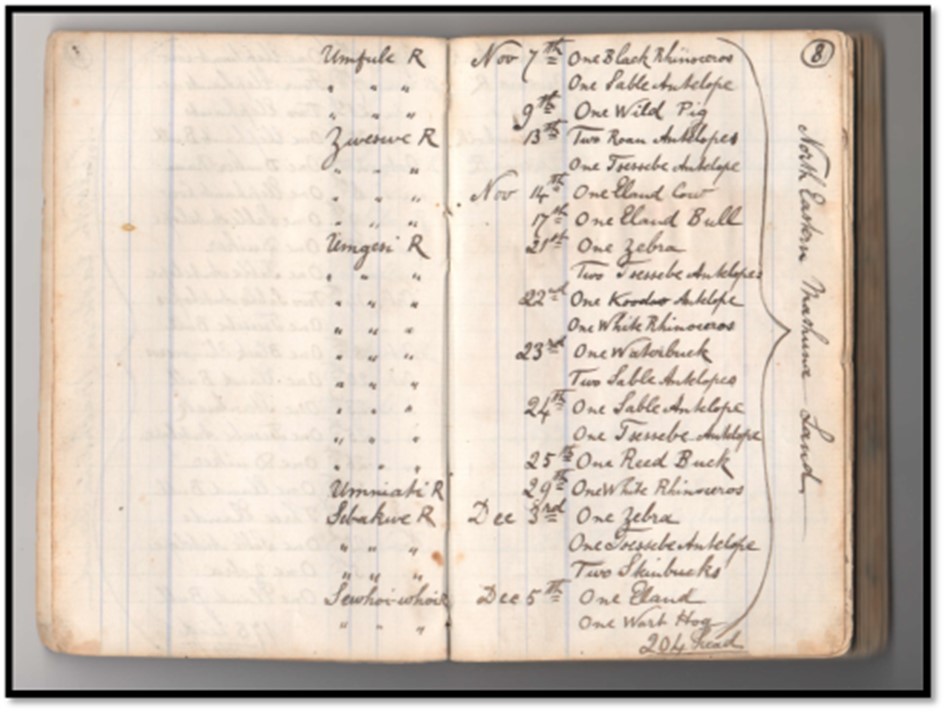 8
Umfule R Nov 7th One Black Rhinoceros
" " " One Sable Antelope
" " " 9th One Wild Pig
Zweswe R 13th Two Roan Antelopes
" " " One Tsessebe Antelope
" " " Nov 14th One Eland Cow
" " " 17th One Eland Bull
Umgesi R 21st One Zebra
" " " Two Tsessebe Antelopes
" " " 22nd One Koodoo Antelope
" " " One White Rhinoceros
" " " 23rd One Waterbuck
" " " Two Sable Antelopes
" " " 24th One Sable Antelope
" " " One Tsessebe Antelope
" " " 25th One Reed Buck
Umniati R 29th One White Rhinoceros
Sebakwe R Dec 3rd One Zebra
" " " One Tsessebe Antelope
" " " Two Stinbucks
Sewhoi-whoi R Dec 5th One Eland
" " " One Wart Hog
204 head
North Eastern Mashuna Land